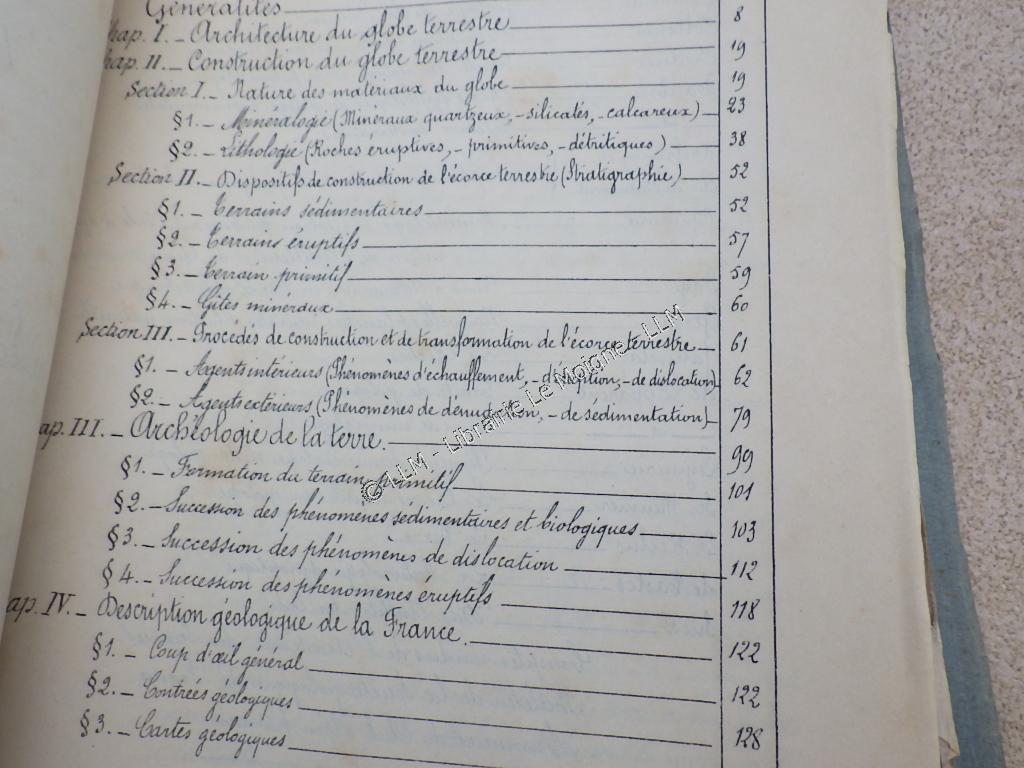 Généralités 8
Chap. I. _ Architecture du globe terrestre 19
Chap. II. _ Construction du globe terrestre 19
Section I. _ Nature des matériaux du globe 23
§1. _ Minéralogie (Minéraux quartzeux, _ silicatés, _ calcareux) 38
§2. _ Lithologie (Roches éruptives, _ primitives, _ détritiques) 52
Section II. _ Dispositifs de construction de l'écorce terrestre (Stratigraphie) 52
§1. _ Terrains sédimentaires 57
§2. _ Terrains éruptifs 59
§3. _ Terrain primitif 60
§4. _ Gîtes minéraux 61
Section III. _ Procédés de construction et de transformation de l'écorce terrestre 62
§1. _ Agents intérieurs (Phénomènes d'échauffement, _ d'éruption, _ de dislocation) 79
§2. _ Agents extérieurs (Phénomènes de dénudation, _ de sédimentation) 99
ap. III. _ Archéologie de la terre. 101
§1. _ Formation du terrain primitif 103
§2. _ Succession des phénomènes sédimentaires et biologiques 112
§3. _ Succession des phénomènes de dislocation 118
§4. _ Succession des phénomènes éruptifs 122
ap. IV. _ Description géologique de la France. 122
§1. _ Coup d'œil général 128
§2. _ Contrées géologiques
§3. _ Cartes géologiques
© LLM - Librairie Le Moigne - LLM